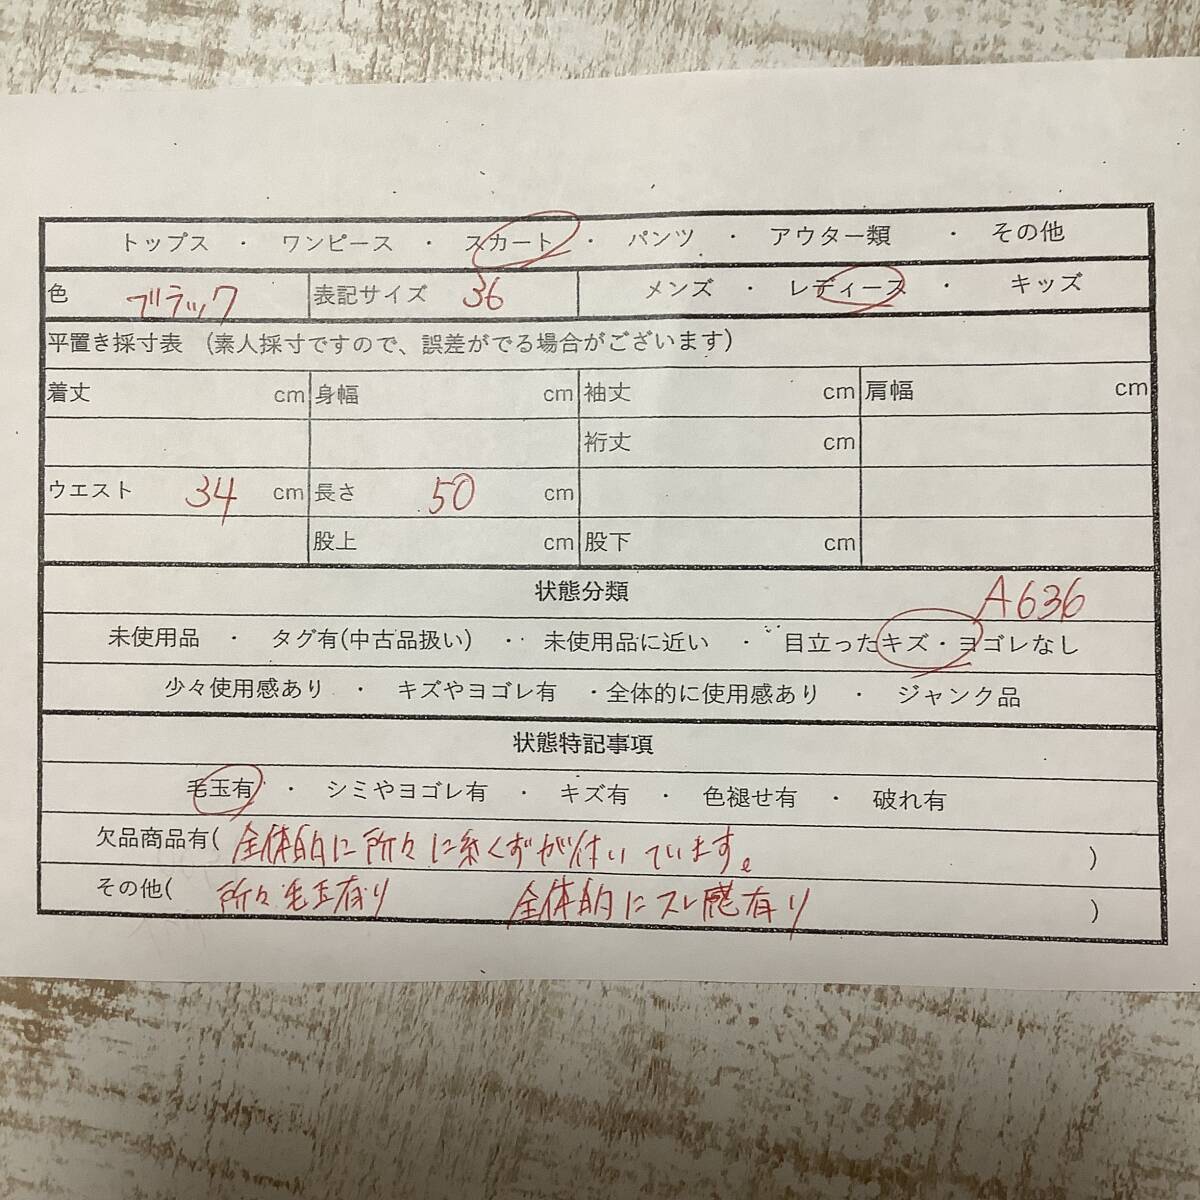 トップス ・ ワンピース ・ スカート ・ パンツ ・ アウター類 ・ その他
色 ブラック 表記サイズ 36 メンズ ・ レディース ・ キッズ
平置き採寸表 (素人採寸ですので、誤差がでる場合がございます)
着丈 cm 身幅 cm 袖丈 cm 肩幅 cm
裄丈 cm
ウエスト 34 cm 長さ 50 cm
股上 cm 股下 cm
状態分類 A636
未使用品 ・ タグ有(中古品扱い) ・ 未使用品に近い ・ 目立ったキズ・ヨゴレなし
少々使用感あり ・ キズやヨゴレ有 ・全体的に使用感あり ・ ジャンク品
状態特記事項
毛玉有 ・ シミやヨゴレ有 ・ キズ有 ・ 色褪せ有 ・ 破れ有
欠品商品有( 全体的に所々に糸くずが付いています。 )
その他( 所々毛玉有り 全体的にスレ感有り )